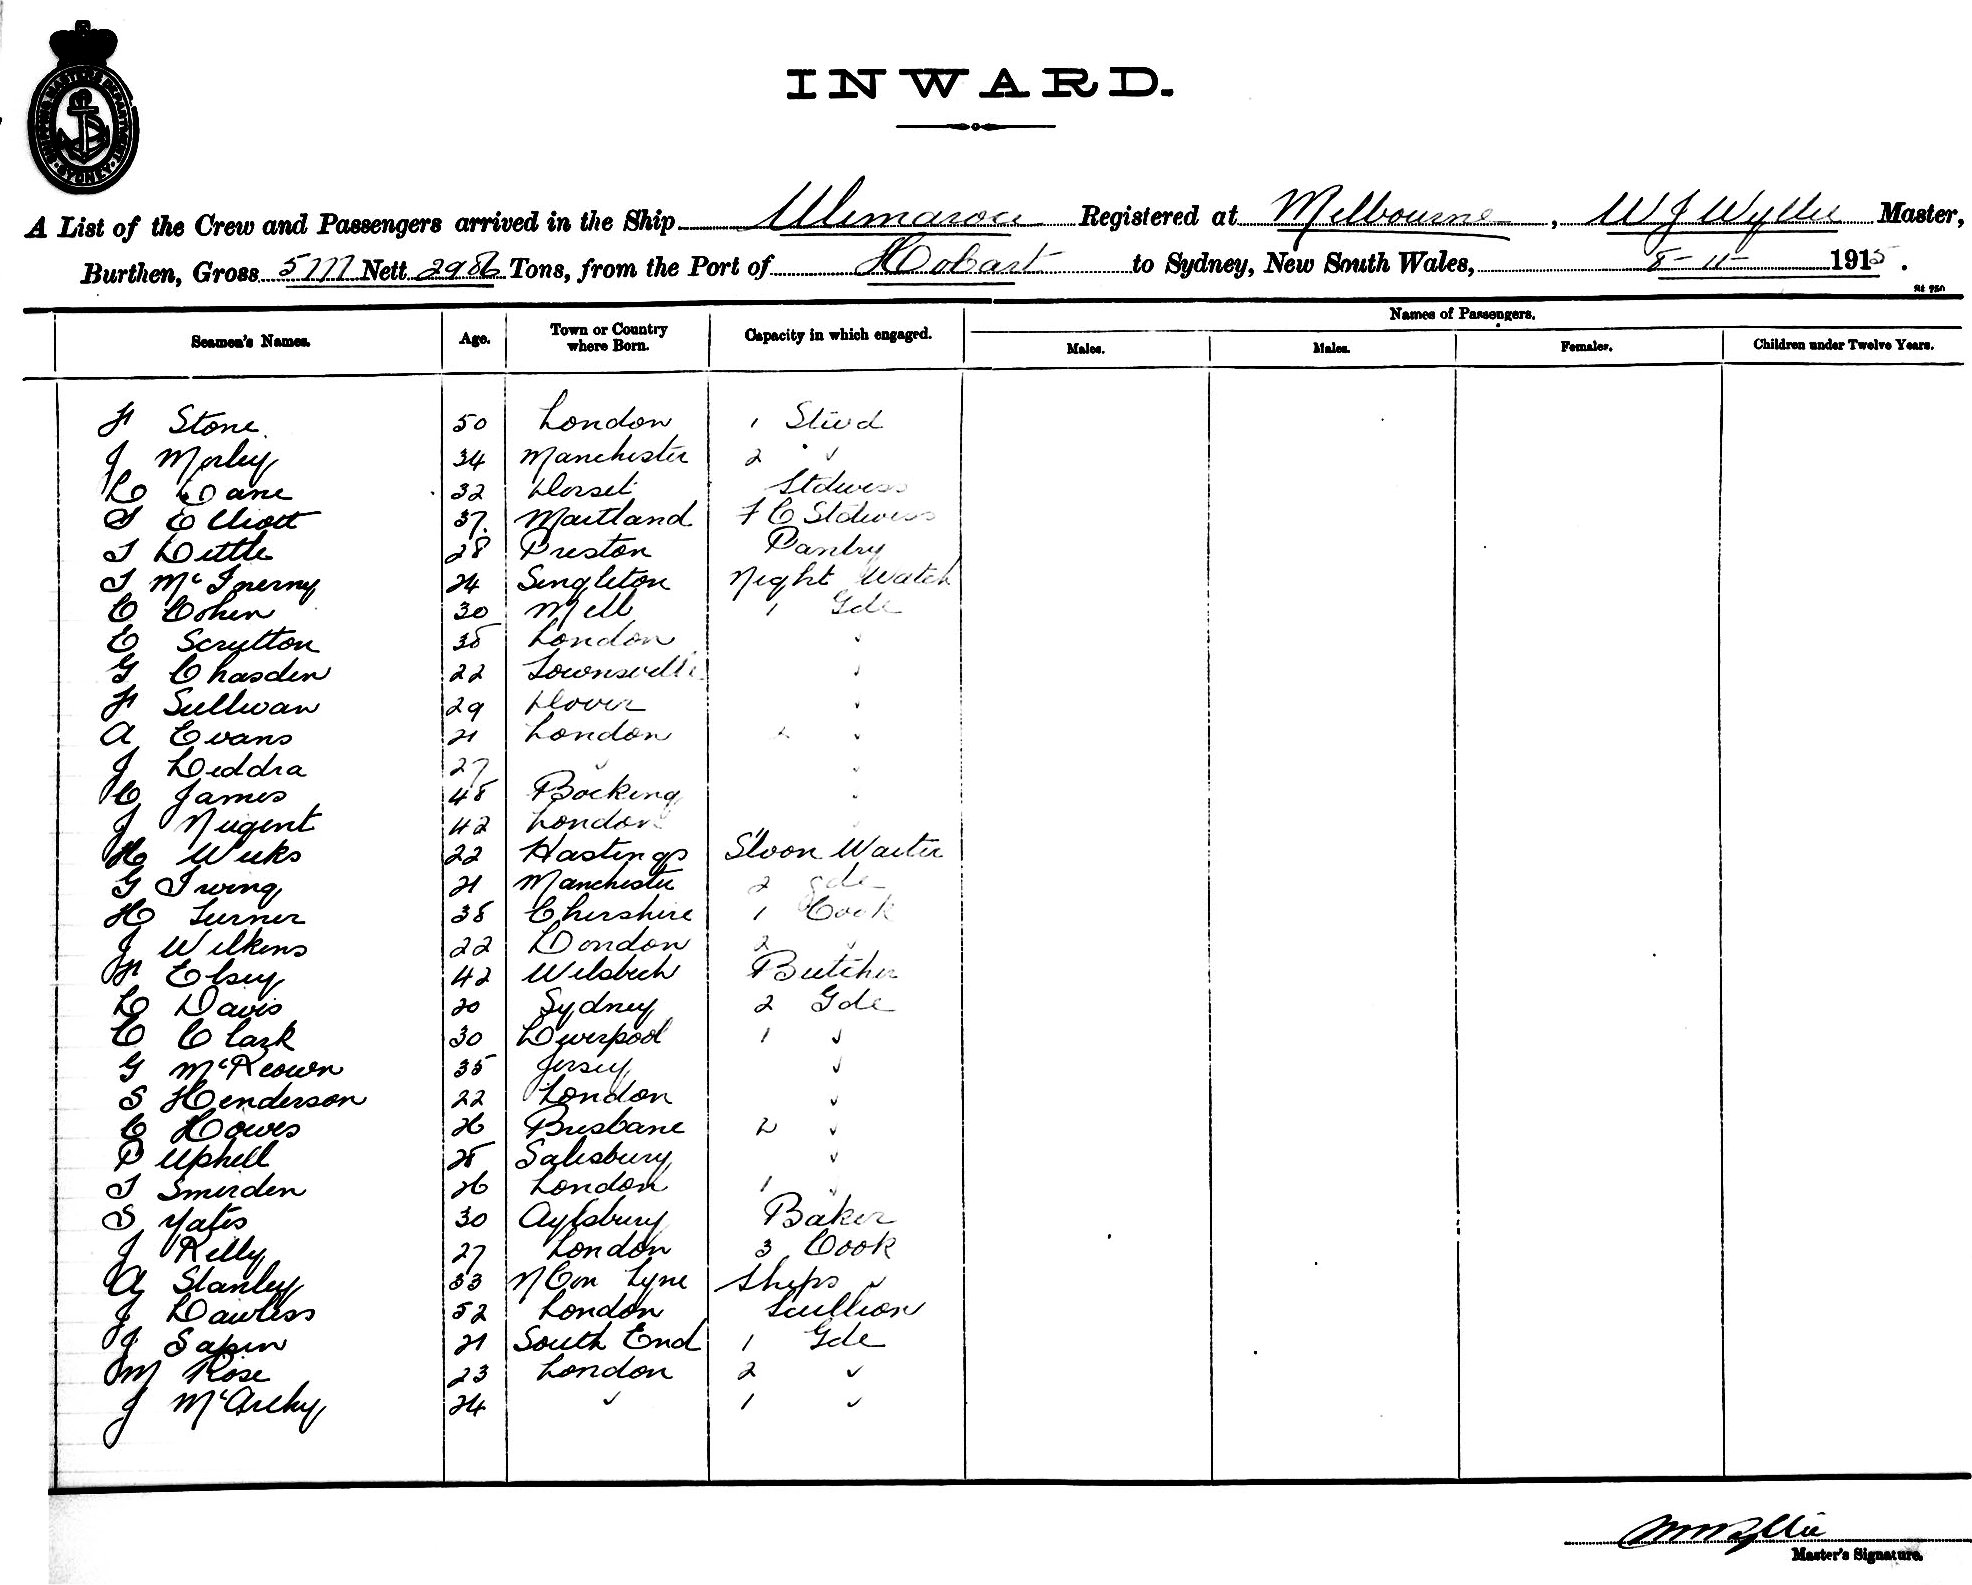 SHIPPING MASTERS DEPARTMENT SYDNEY
INWARD.
A List of the Crew and Passengers arrived in the Ship Ulimaroa Registered at Melbourne, W J Wyllie Master,
Burthen, Gross 5777 Nett 2986 Tons, from the Port of Hobart to Sydney, New South Wales, 8-11- 1915.
Names of Passengers.
Seamen's Names. Age. Town or Country where Born. Capacity in which engaged. Males. Males. Females. Children under Twelve Years.
F Stone 50 London 1 Stwd
J Morley 34 Manchester 2 "
L Lane 32 Dorset Stdwess
S Elliott 37 Maitland F C Stdwess
T Little 28 Preston Pantry
T McInerny 24 Singleton Night Watch
C Cohen 30 Melb 1 Gde
E Scrutton 38 London "
G Chasden 22 Townsville "
F Sullivan 29 Dover "
A Evans 21 London 2 "
J Liddra 27 " "
C James 48 Bocking "
J Nugent 42 London
H Weeks 22 Hastings S'loon Waiter
G Irving 21 Manchester 2 gde
H Turner 38 Chershire 1 Cook
J Wilkens 22 London 2 "
F Elsey 42 Wisbech Butcher
L Davis 20 Sydney 2 Gde
C Clark 30 Liverpool 1 "
G McKeown 35 Jersey "
S Henderson 22 London "
C Howes 26 Brisbane 2 "
P Uphell 28 Salisbury "
T Smerden 26 London 1 "
S Yates 30 Aylsbury Baker
J Kelly 27 London 3 Cook
A Stanley 33 N C on Tyne Ships "
J Lawless 52 London Scullion
J Sapin 21 South End 1 Gde
M Rose 23 London 2 "
J 24 " 1 "
Master's Signature.